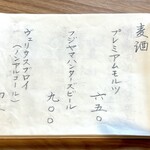 麦酒
プレミアムモルツ
六五〇
フジヤマハンタースビール
九〇〇
ヴェリタスブロイ
(ノンアルコール)